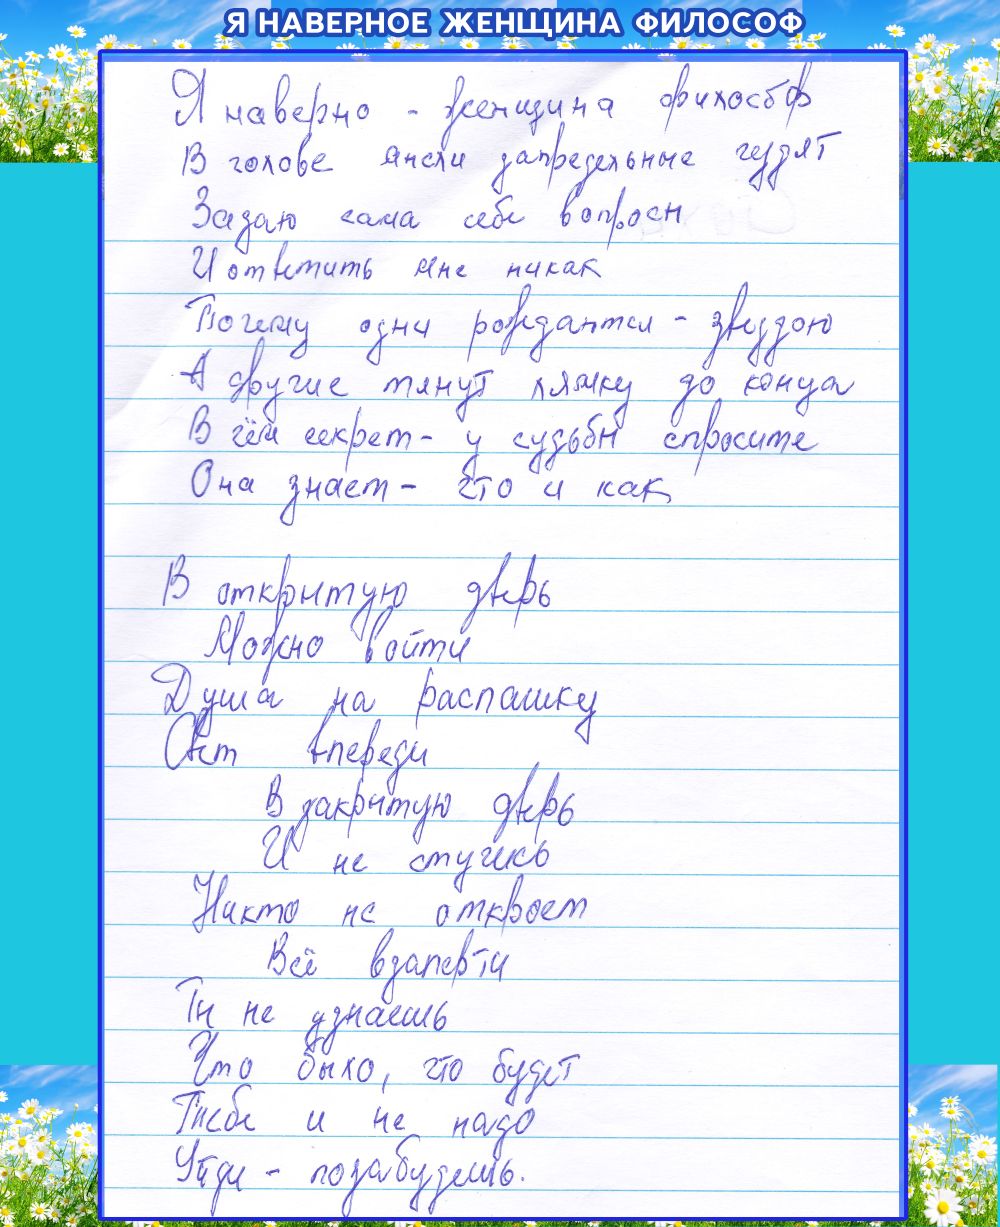 Я НАВЕРНОЕ ЖЕНЩИНА ФИЛОСОФ
Я наверно - женщина философ
В голове мысли запредельные гудят
Задаю сама себе вопросы
И ответить мне никак
Почему одни рождаются - звездою
А другие тянут лямку до конца
В чём секрет - у судьбы спросите
Она знает - что и как
В открытую дверь
Можно войти
Душа на распашку
Свет впереди
В закрытую дверь
И не стучись
Никто не откроет
Всё взаперти
Ты не узнаешь
Что было, что будет
Тебе и не надо
Уйди - позабудешь.